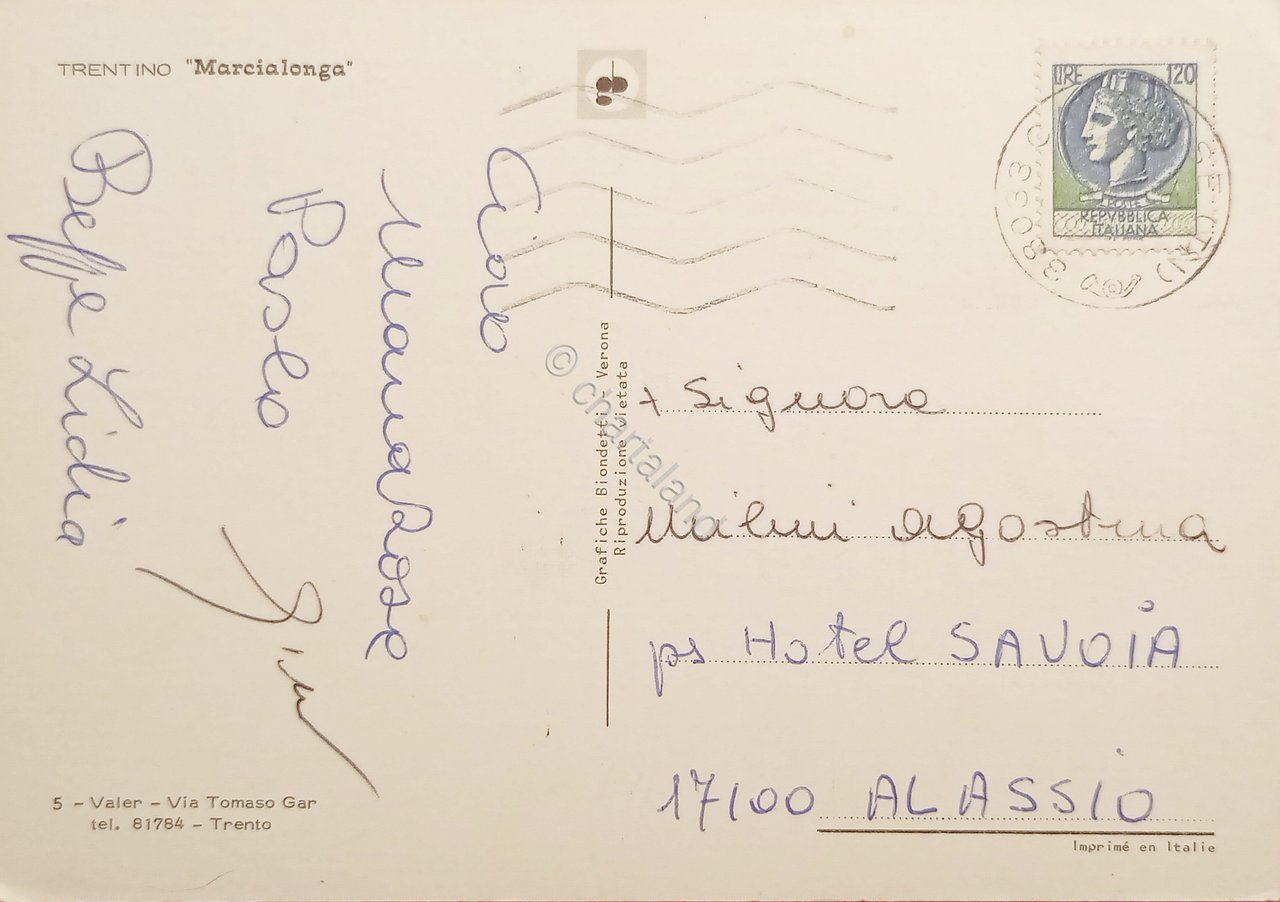 TRENTINO "Marcialonga"
Ciao
Mariarose
Paolo
Beppe Lidia
5 - Valer - Via Tomaso Gar
tel. 81784 - Trento
Grafiche Biondetti - Verona
Riproduzione vietata
© chartaland
LIRE 120
POSTE
REPVBBLICA
ITALIANA
38033 C SE (TN)
+ Signora
Malini Agostina
ps Hotel SAVOIA
17100 ALASSIO
Imprimé en Italie